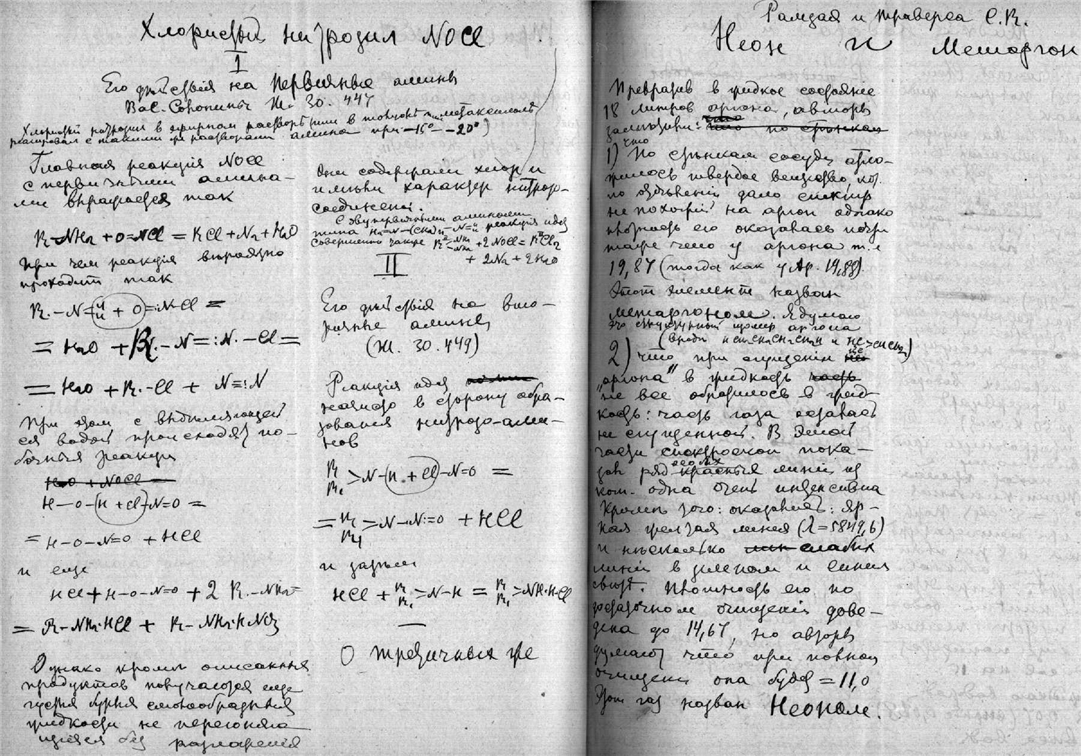 Хлористый нитрозил NOCl
I
Его действия на первичные амины
Вас. Солонина Ж. 30. 447
Хлористый нитрозил в эфирном растворе или в толуоле или метаксилоле
реагировал с такими же растворами амина при –15° – –20°)
Главная реакция NOCl
с первичными амина-
ми выражается так
R–NH2 + O=NCl = RCl + N2 + H2O
При чем реакция вероятно
проходит так
R·–N=(H/H + O)=:NCl =
= H2O + R·–N=:N·–Cl =
= H2O + R·–Cl + N≡:N
При этом с выделяющей-
ся водой происходят по-
бочныя реакции
H2O + NOCl =
H–O–(H + Cl)–N=O =
= H–O–N=O + HCl
и еще
HCl + H–O–N=O + 2 R·–NH2 =
= R–NH2·HCl + R–NH2·HNO2
Однако кроме описанных
продуктов получаются еще
густыя бурыя смолообразныя
жидкости не перегоняю-
щиеся без разложения
Они содержали хлор и
имели характер нитрозо-
соединений.
С двупервичными аминами
типа H2=N–(CH2)n–N=H2 реакция идет
совершенно также R"–NH2–NH2 + 2NOCl = R"Cl2
+ 2N2 + 2H2O
II
Его действия на вто-
ричные амины
(Ж. 30. 449)
Реакция идет
начисто в сторону обра-
зования нитрозо-ами-
нов
R R1 >N–(H + Cl)–N=O =
= R R1 >N–N:=O + HCl
и затем
HCl + R R1 >N–H = R R1 >NH·HCl
О третичныя же
Рамзая и Траверса C.R.
Неон и Метаргон
Превратив в жидкое состояние
18 литров аргона, авторы
заметили: что по стенкам
что
1) По стенкам сосуда отло-
жилось твердое вещество кот.
по обложении дало спектр
не похожий на аргон однако
плотность его оказалась почти
также что у аргона т.е.
19,87 (тогда как у Ар. 19,88).
Этот элемент назван
метаргоном. Я думаю
это структурный изомер аргона
2) что при сгущении не
„аргона" в жидкость часть
не все обратилось в жид-
кость: часть газа оставась
не сгущенной. В этой
части спектроскоп пока-
зал ряд красных линий из
кот. одна очень интенсивна
Кроме того: оказалась: яр-
кая желтая линия (λ=5849,6)
и несколько слабых
линий в зеленом и синем
свет. Плотность его по
недостаточном очищении дове-
дена до 14,67, но авторы
думают что при полной
очищении она будет = 11,0
Этот газ назван Неоном.